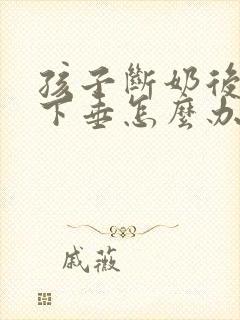 孩子斷奶後
下垂怎麼办
戚薇